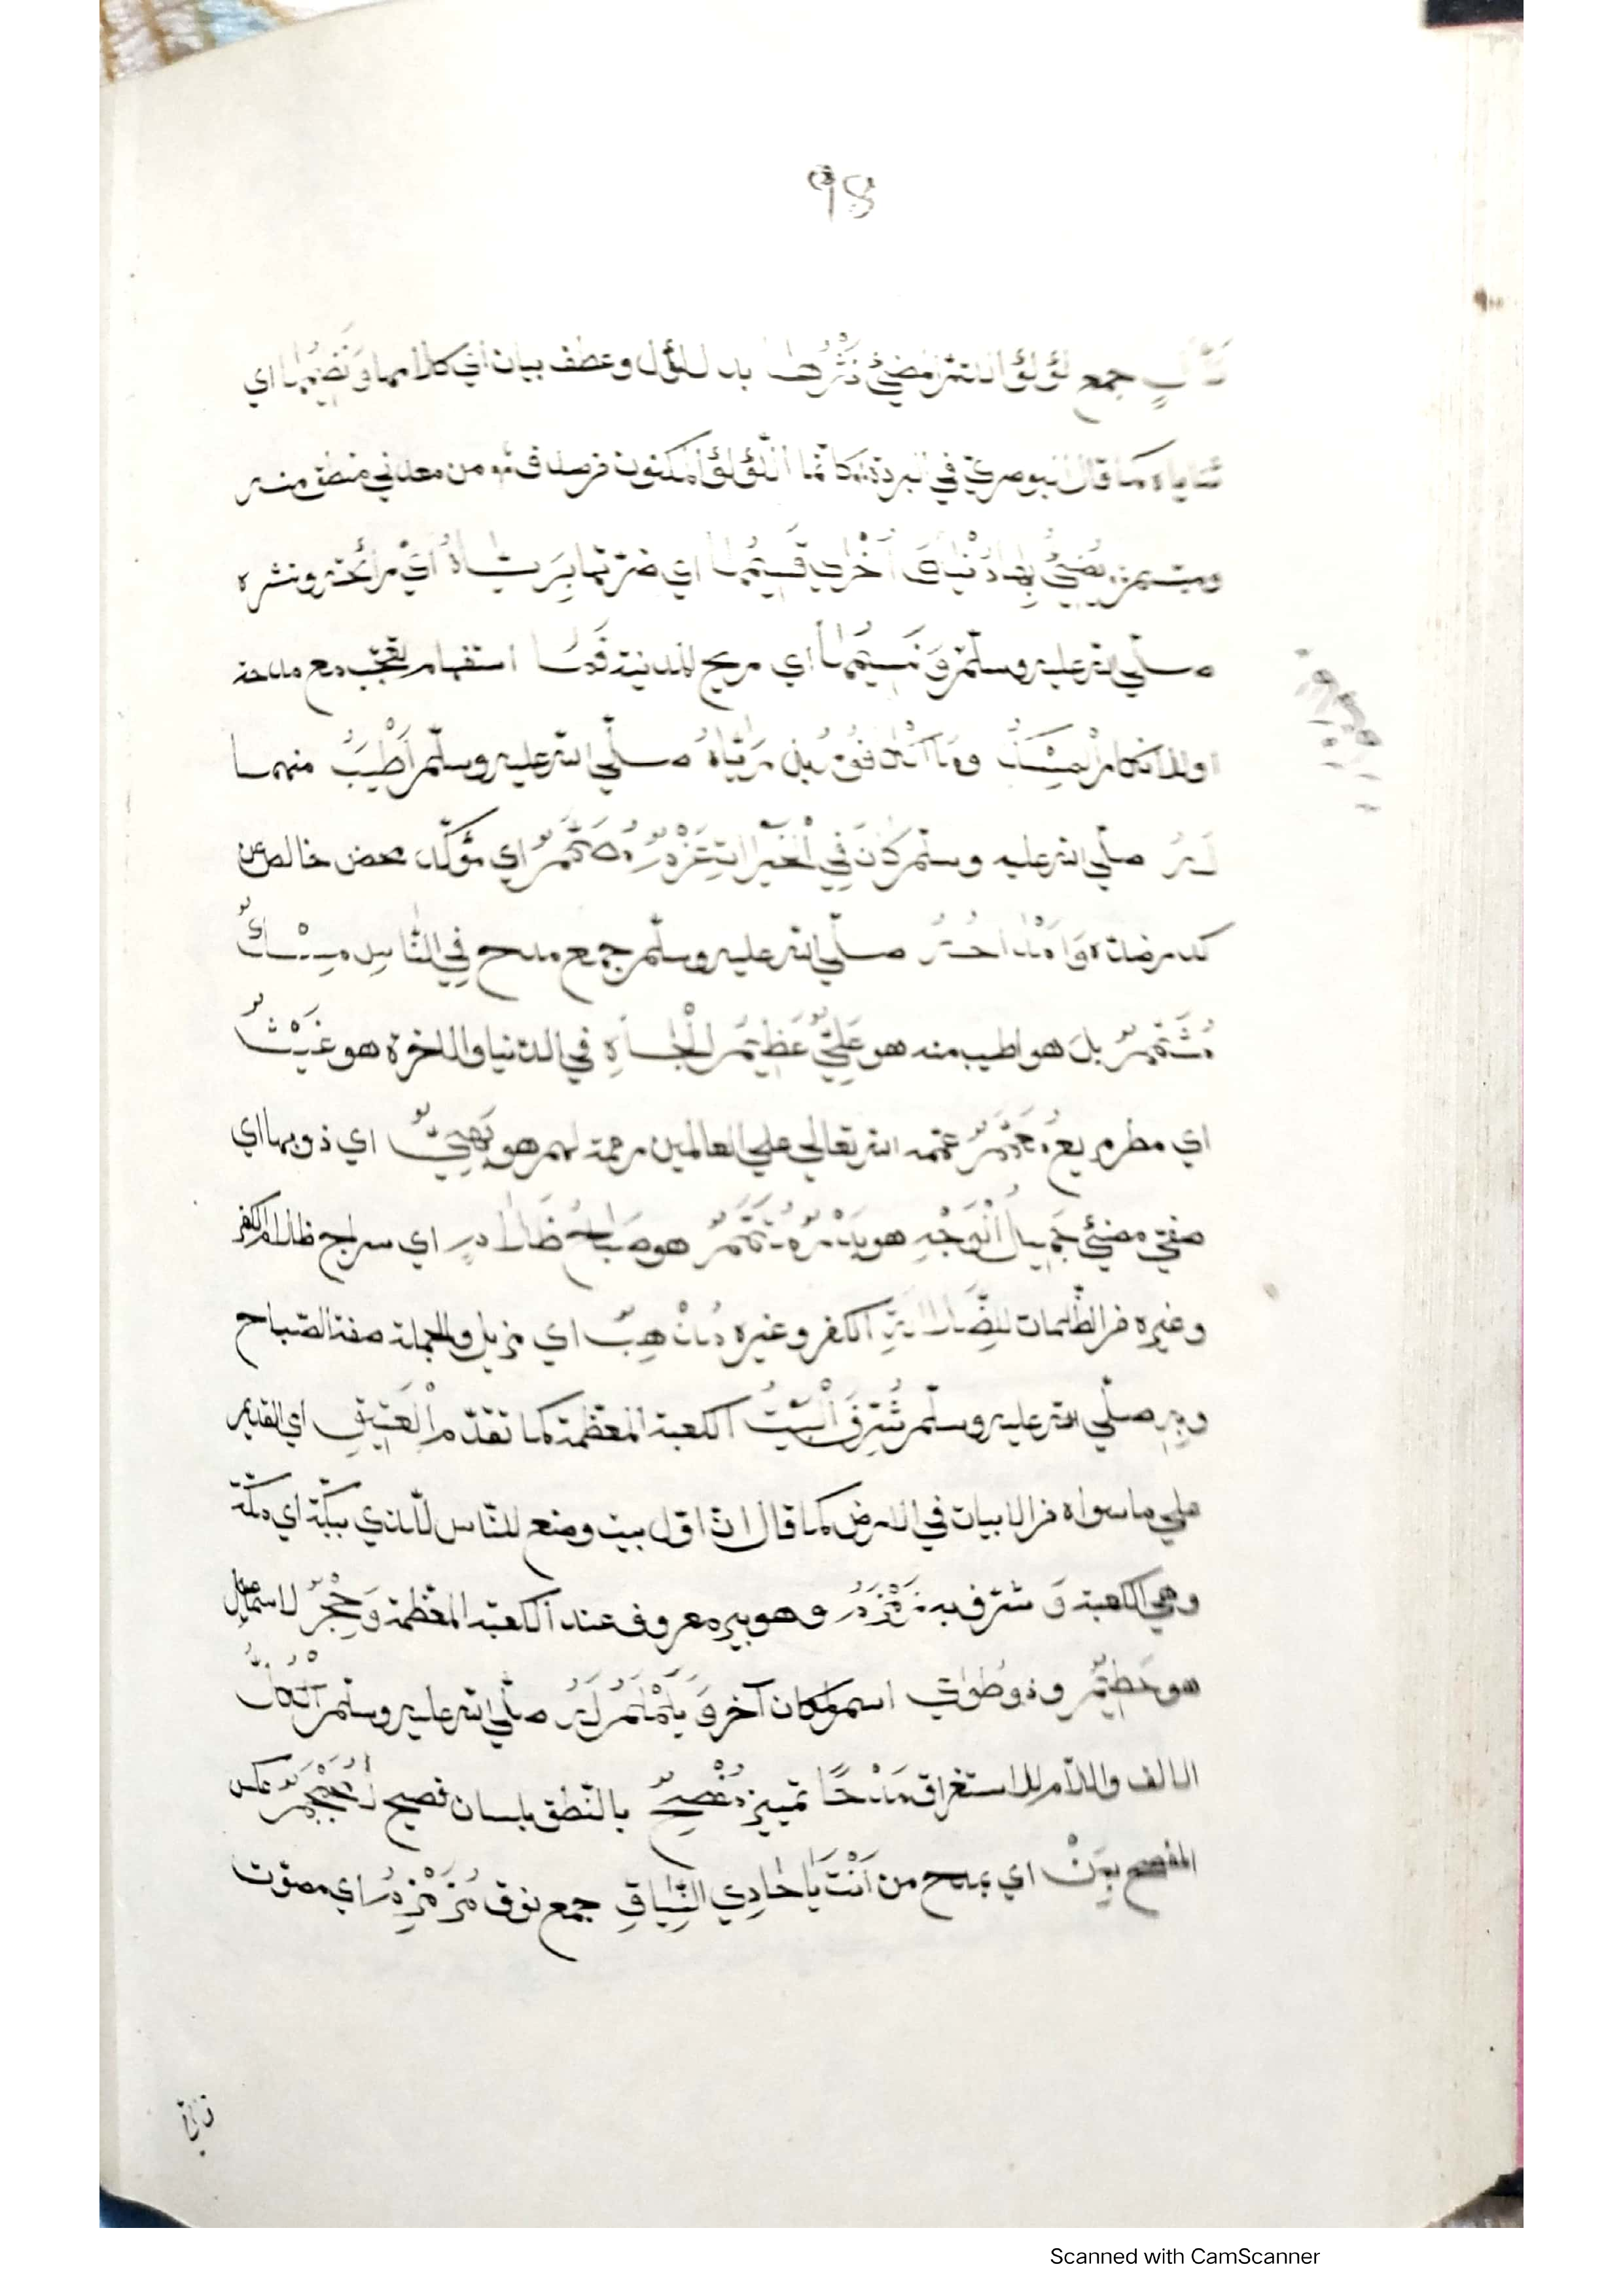 98
جمع لؤلؤ المضئ نَثْرُهَا بدل لؤل وعطف بيان اي كلامها وَنَظِيمُهَا اي
ثناياه كما قال البوصري في البردة كانّما اللّؤلؤ المكنون في صدف ٭ من معدني منطق منه
ومبتسم يُضِيْئُ بِهَا دُنْيَا وَ اُخْرٰي قَسِيْمُهَا اي ضرّتها بِرَيَّاهُ اي رائحته ونشره
صلّي الله عليه وسلّم وَ نَسِيْمُهَا اي ريح المدينة فَمَا استفهام تعجّب مع مدحه
او للانكار الْمِسْكُ وَمَا الْكَافُوْرُ بل رَيَّاهُ صلّي الله عليه وسلّم اَطْيَبُ منهما
لَهُ صلّي الله عليه وسلّم كَانَ فِي الْخَيْرَاتِ عَزْمٌ مُصَمَّمٌ اي مؤكّد محض خالص عن
صلّي الله عليه وسلّم جمع مدح فِي النَّاسِ مِسْكٌ
مُشَمَّمٌ بل هو اطيب منه هو عَلِيٌّ عَظِيْمُ الْجَاهِ في الدّنيا والاخرة هو غَيْثٌ
اي مطر عمّمه الله تعالي علي العالمين رحمة لهم هو بَهِيٌّ اي ذو بها اي
مضئي جَمِيْلُ الْوَجْهِ هو بَدْرٌ مُتَمَّمٌ هو صَبَاحُ ظَلَامٍ اي سراج ظلام الكفر
وغيره من الظّلمات لِلضَّلَالَةِ الكفر وغيره مُذْهِبٌ اي مزيل والجملة صفة الصّباح
وَبِهِ صلّي الله عليه وسلّم شُرِّفَ الْبَيْتُ الكعبة المعظّمة كما تقدّم الْعَتِيْقِ اي القديم
علي ما سواه من الابيات في الارض كما قال انّ اوّل بيت وضع للنّاس للّذي ببكّة اي مكّة
وهي الكعبة وَ شرّف به زَمْزَمُ وهو بير معروف عند الكعبة المعظّمة وَحِجْرٌ لاسماعيل
هو حَطِيْمٌ وذو طُوٰي اسم لمكان آخر وَ يَلَمْلَمُ لَهُ صلّي الله عليه وسلّم الْكُلُّ
الالف واللّام للاستغراق مَدْحًا تمييز مُفْصِحٌ بالنّطق بلسان فصيح اُعْجَمٌ عكس
المفصح بِمَنْ اي بمدح من اَنْتَ يَا حَادِي النِّيَاقِ جمع نوق مُزَمْزِمُ اي مصوّت